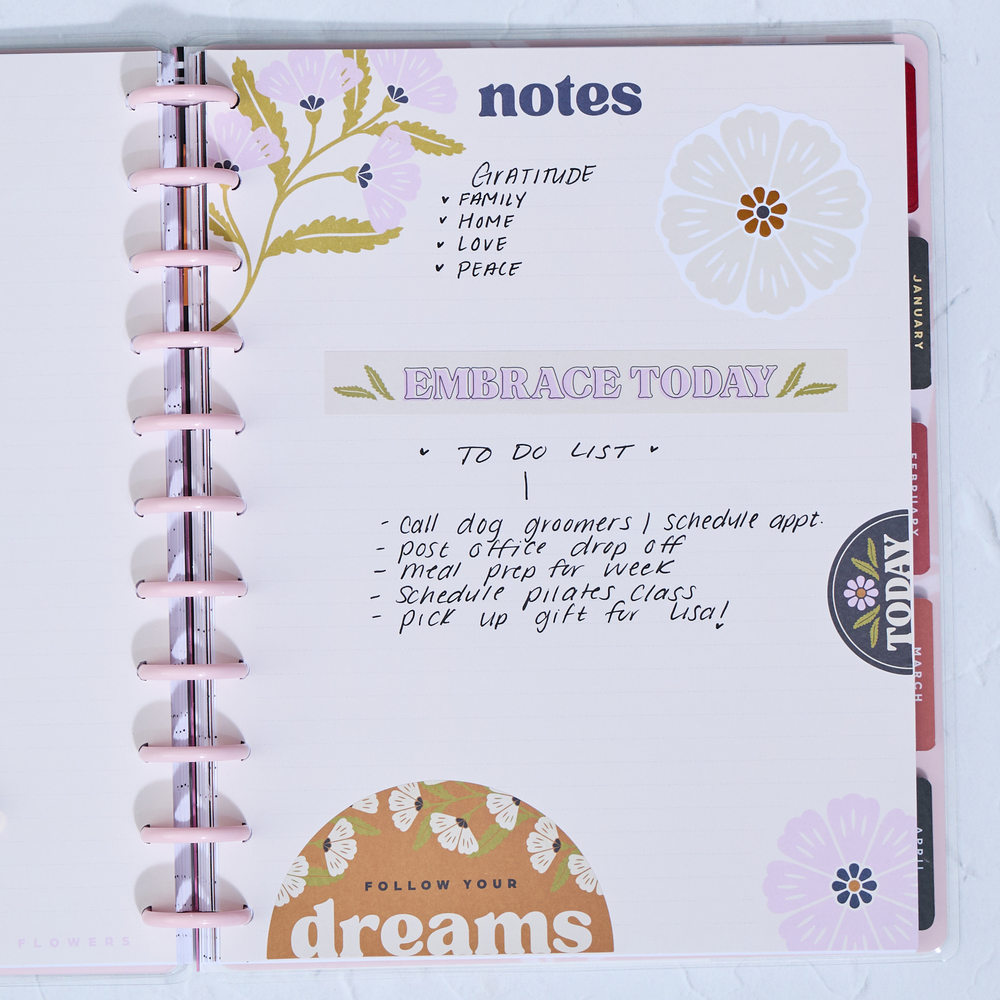 notes
GRATITUDE
FAMILY
HOME
LOVE
PEACE
EMBRACE TODAY
TO DO LIST
- call dog groomers / schedule appt.
- post office drop off
- meal prep for week
- Schedule pilates class
- pick up gift for Lisa!
FOLLOW YOUR
dreams
FLOWERS
JANUARY
FEBRUARY
TODAY
MARCH
APRIL